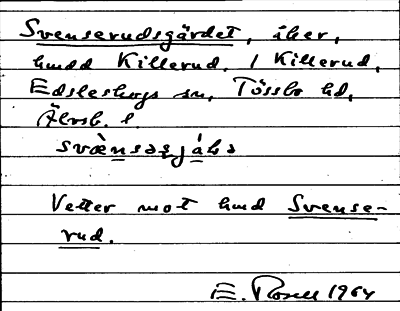 Svenserudsgärdet, åker,
hmd Killerud, i Killerud,
Edsleskogs sn, Tössbo hd,
Älvsb. l.
Vetter mot hmd Svense-
rud.
E. Rosell 1964